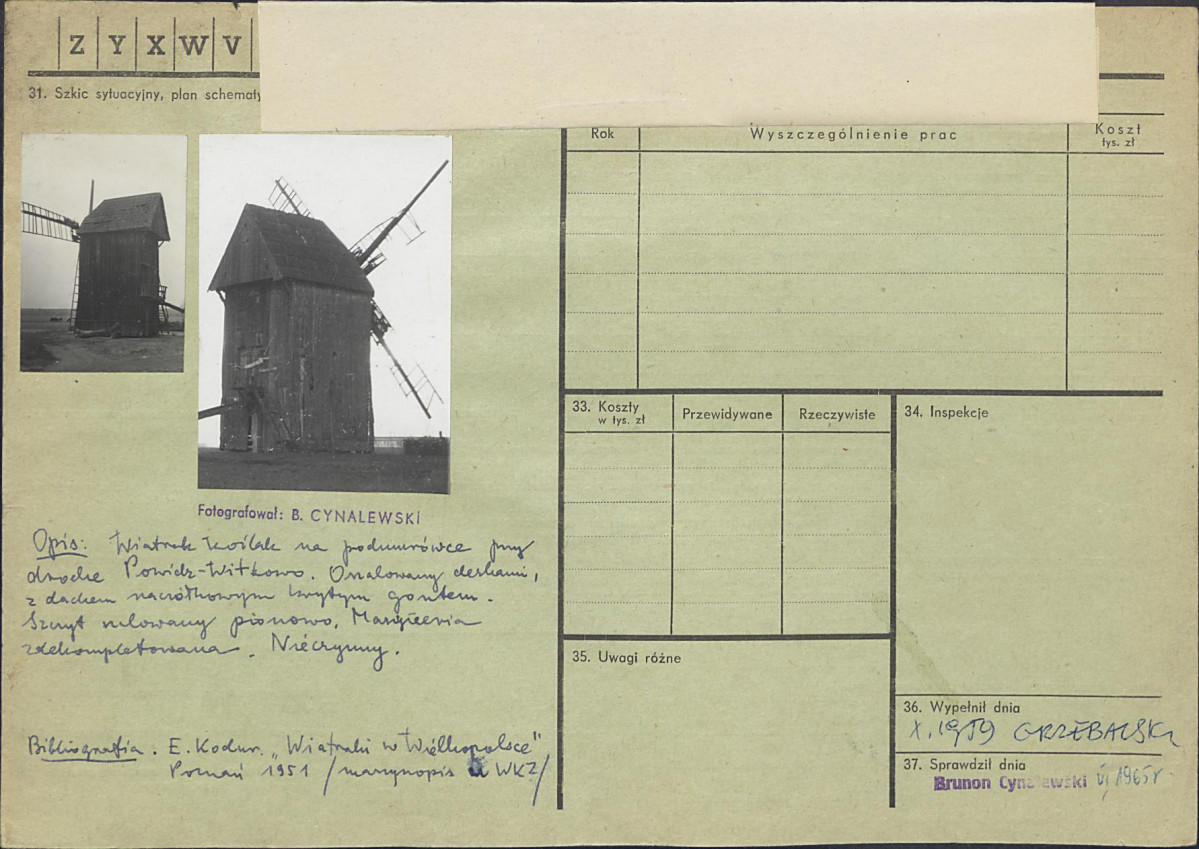 Z Y X W V
31. Szkic sytuacyjny, plan schematy
Rok Wyszczególnienie prac Koszt
tys. zł
Fotografował: B. CYNALEWSKI
Opis: Wiatrak koźlak na podmurówce przy
drodze Powidz-Witkowo. Oszalowany deskami,
z dachem naczółkowym krytym gontem.
Szczyt szalowany pionowo. Maszyneria
zdekompletowana. Nieczynny.
Bibliografia: E. Kodur. "Wiatraki w Wielkopolsce"
Poznań 1951 /maszynopis u WKZ/
33. Koszty
w tys. zł
Przewidywane Rzeczywiste
34. Inspekcje
35. Uwagi różne
36. Wypełnił dnia
X. 1959 GRZEBALSKI
37. Sprawdził dnia
Brunon Cynalewski VI 1965 r